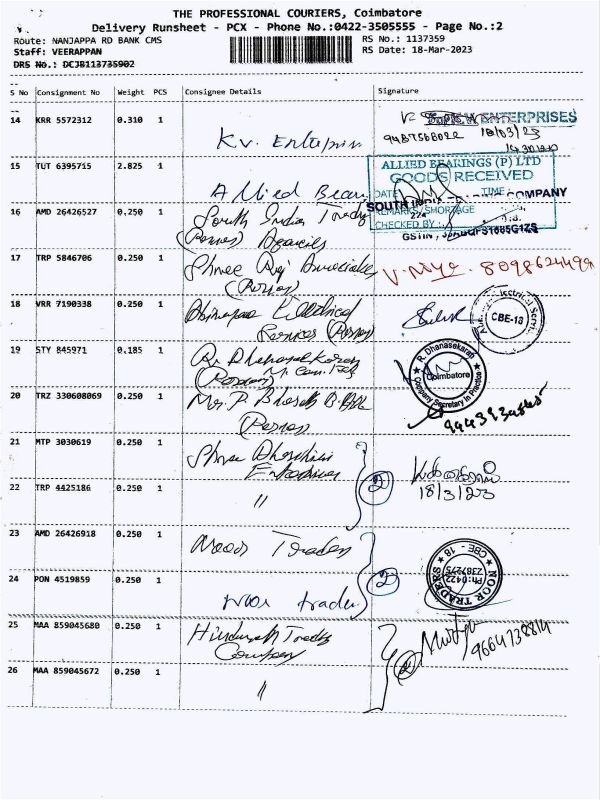 THE PROFESSIONAL COURIERS, Coimbatore
Delivery Runsheet - PCX - Phone No.:0422-3505555 - Page No.:2
Route: NANJAPPA RD BANK CMS
RS No.: 1137359
Staff: VEERAPPAN
RS Date: 18-Mar-2023
DRS No.: DCJB113735902
S No Consignment No Weight PCS Consignee Details Signature
14 KRR 5572312 0.310 1
K.V. Enterprises
ENTERPRISES
9487568022 18/03/23
15 TUT 6395715 2.825 1
Allied Bearings
ALLIED BEARINGS (P) LTD
GOODS RECEIVED
DATE TIME
REMARKS/SHORTAGE
CHECKED BY
16 AMD 26426527 0.250 1
South India Trading
Agencies
SOUTH INDIA COMPANY
GSTIN
17 TRP 5846706 0.250 1
Shree Raj Associates
8098624499
18 VRR 7190338 0.250 1
Electrical
Services
CBE-18
19 STY 845971 0.185 1
R. Dhanasekaran
M.Com.
R. Dhanasekaran
Coimbatore
Company Secretary in Practice
20 TRZ 330608069 0.250 1
Mr. P. Bharath
21 MTP 3030619 0.250 1
Shree Dharshini
Enterprises
2
18/3/23
22 TRP 4425186 0.250 1
"
23 AMD 26426918 0.250 1
Noor Traders
2
NOOR TRADERS
Ph:0422
2387275
CBE - 18
24 PON 4519859 0.250 1
Noor traders
25 MAA 859045680 0.250 1
Hindustan Trading
Company
2
9664738814
26 MAA 859045672 0.250 1
"